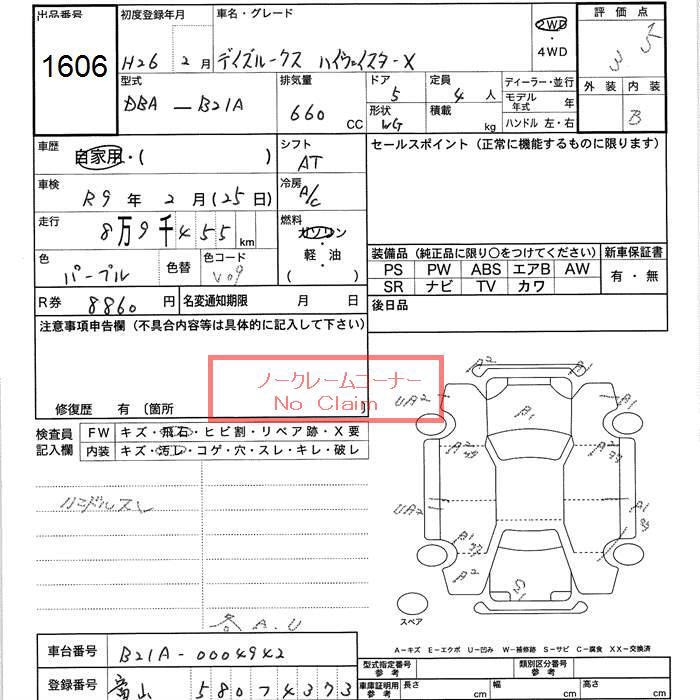 出品番号 初度登録年月 車名・グレード 評価点
1606 H26 2月 デイズルークス ハイウェイスターX 2WD・4WD 3.5
型式 DBA-B21A 排気量 660 CC ドア 5 定員 4 人 ディーラー・並行 外装 内装
形状 WG 積載 kg モデル年式 年 B
ハンドル 左・右
車歴 自家用・( ) シフト AT セールスポイント(正常に機能するものに限ります)
車検 R9年 2月(25日) 冷房 A/C
走行 8万9千455km 燃料 ガソリン・軽油( )
色 パープル 色替 色コード V09 装備品(純正品に限り○をつけてください) 新車保証書
PS PW ABS エアB AW 有・無
SR ナビ TV カワ
R券 8860円 名変通知期限 月 日 後日品
注意事項申告欄(不具合内容等は具体的に記入して下さい)
ノークレームコーナー
No Claim
修復歴 有 〔箇所
検査員記入欄 FW キズ・飛石・ヒビ割・リペア跡・X要
内装 キズ・汚レ・コゲ・穴・スレ・キレ・破レ
ハンドルスレ
各A.U
A2 A2
UA2 A1
A1
UA2 A1
A2
スペア
A-キズ E-エクボ U-凹み W-補修跡 S-サビ C-腐食 XX-交換済
車台番号 B21A-0004942
型式指定番号 参考 類別区分番号 参考
登録番号 富山 580 ス 4373
車庫証明用 参考 長さ cm 幅 cm 高さ cm